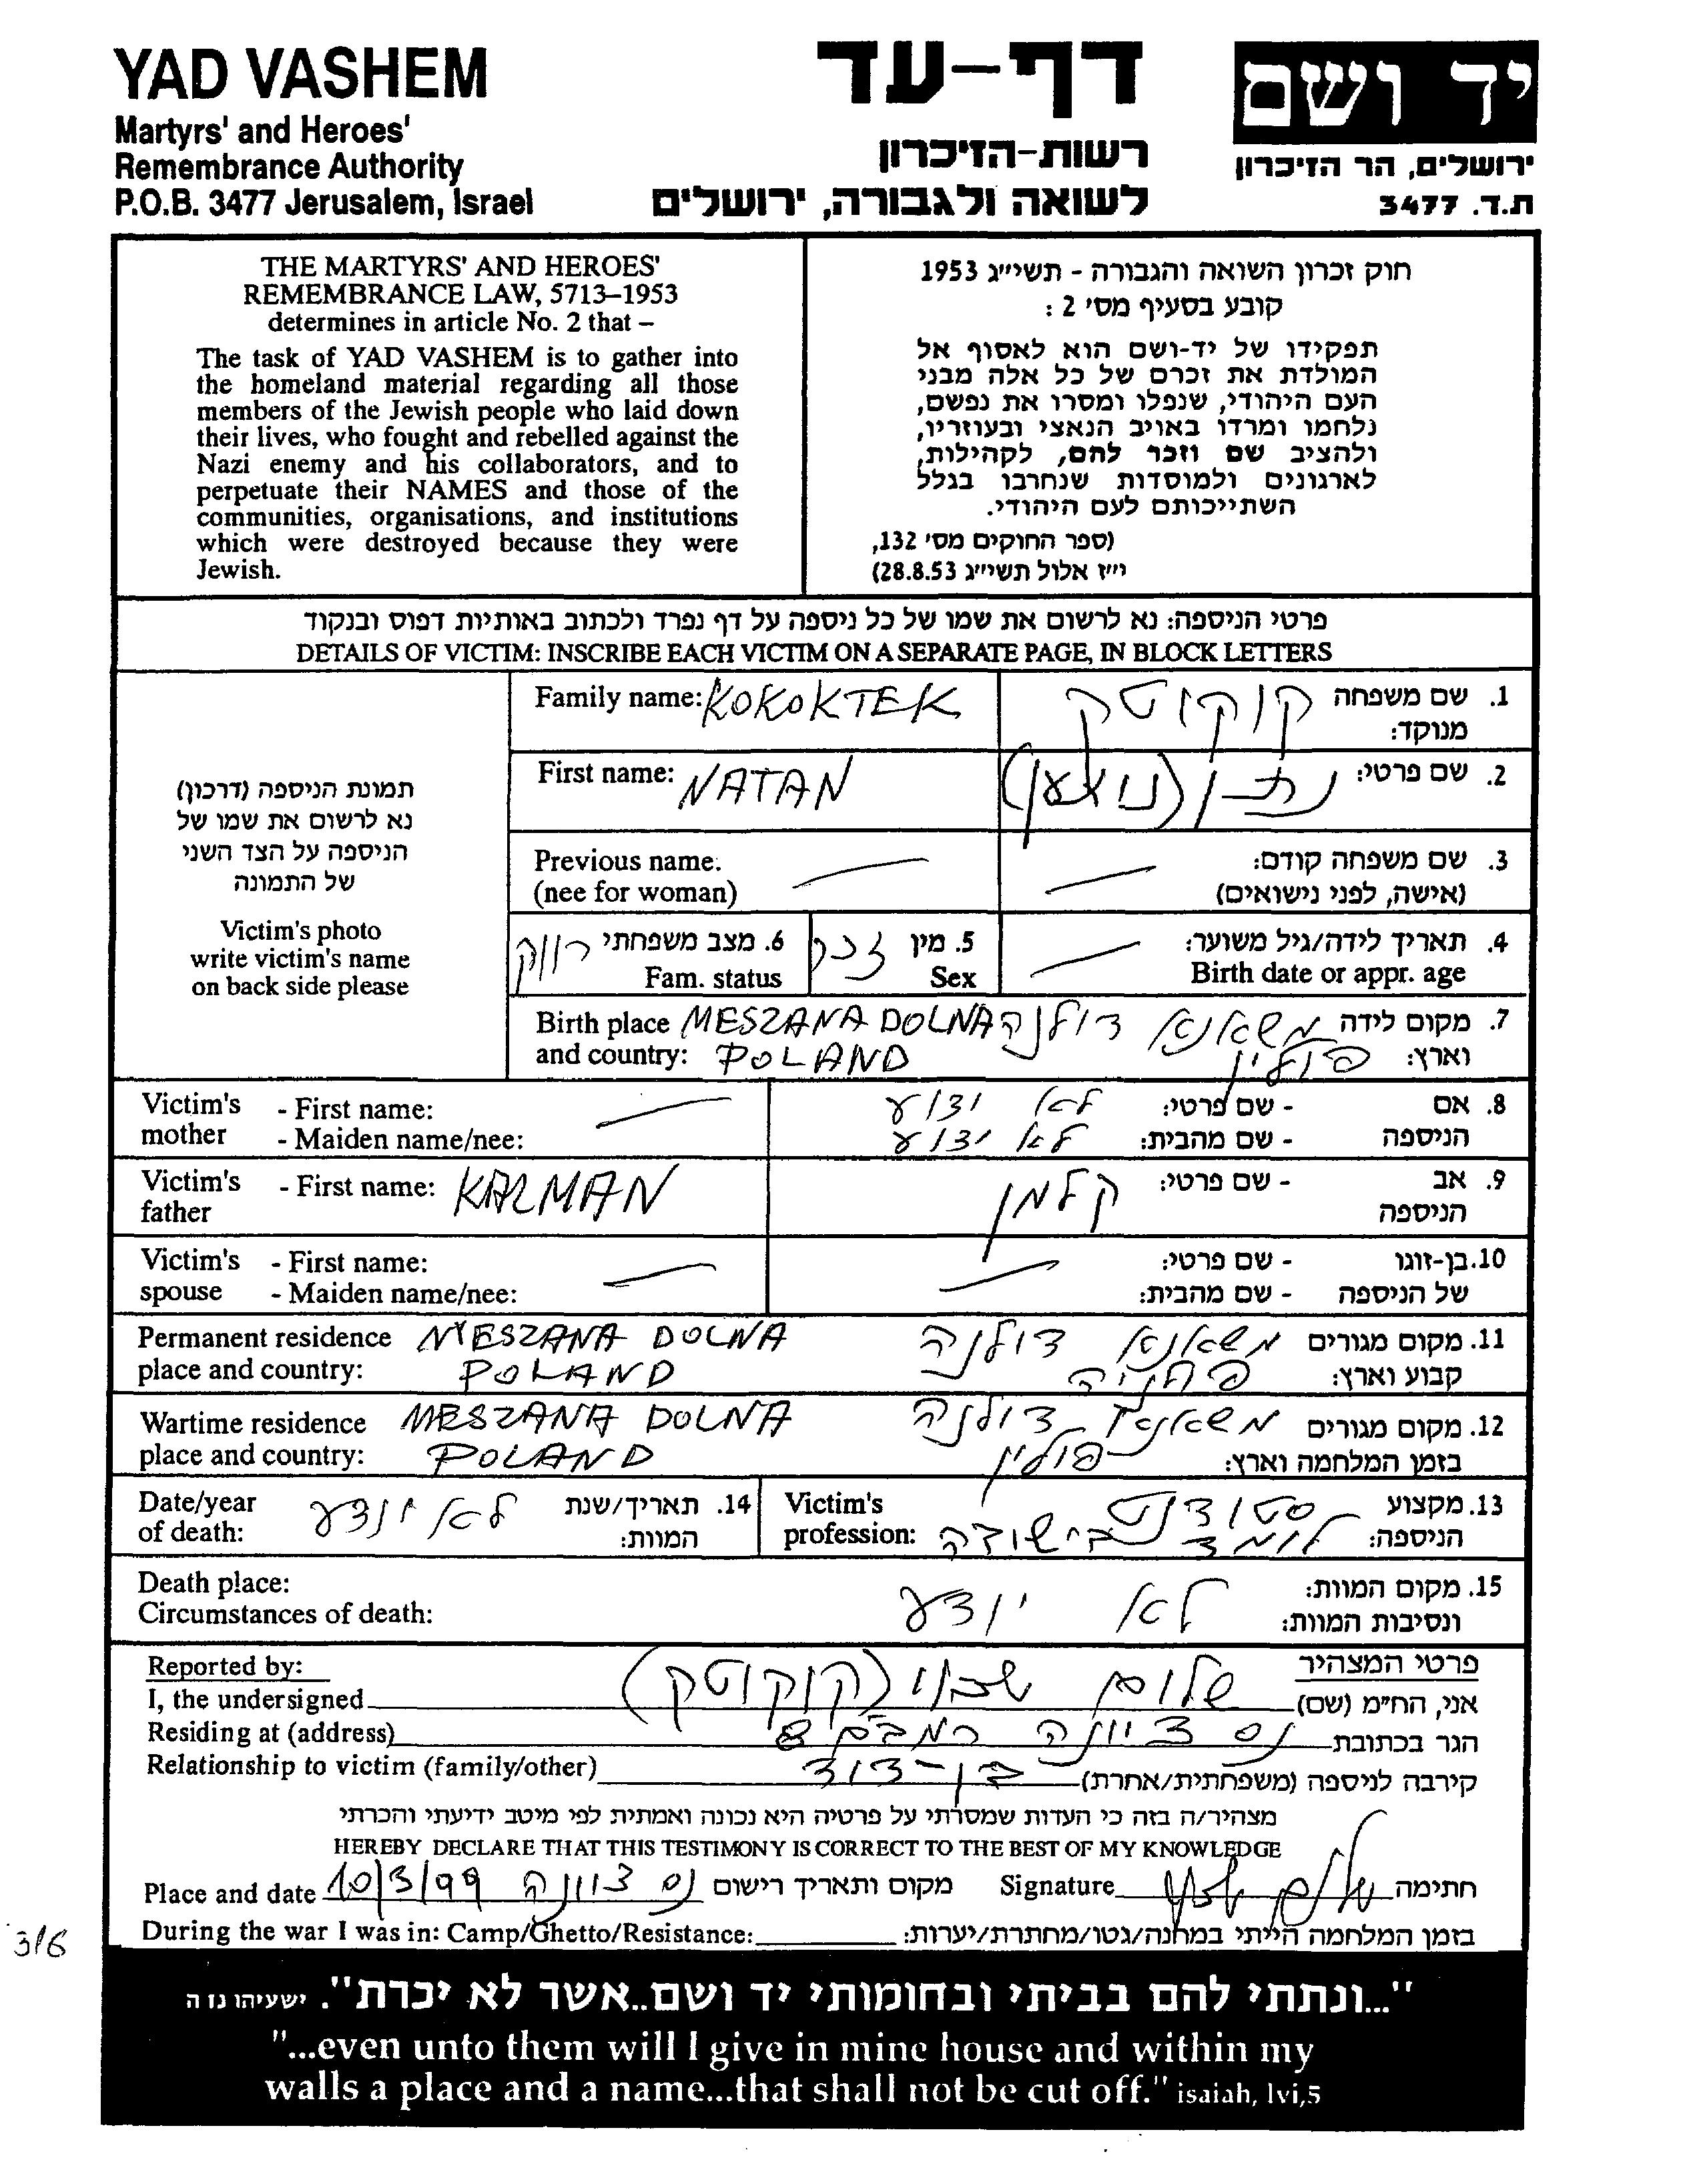 YAD VASHEM
Martyrs' and Heroes'
Remembrance Authority
P.O.B. 3477 Jerusalem, Israel
דף-עד
רשות-הזיכרון
לשואה ולגבורה, ירושלים
יד ושם
ירושלים, הר הזיכרון
ת.ד. 3477
THE MARTYRS' AND HEROES'
REMEMBRANCE LAW, 5713–1953
determines in article No. 2 that –
The task of YAD VASHEM is to gather into
the homeland material regarding all those
members of the Jewish people who laid down
their lives, who fought and rebelled against the
Nazi enemy and his collaborators, and to
perpetuate their NAMES and those of the
communities, organisations, and institutions
which were destroyed because they were
Jewish.
חוק זכרון השואה והגבורה - תשי"ג 1953
קובע בסעיף מס' 2 :
תפקידו של יד-ושם הוא לאסוף אל
המולדת את זכרם של כל אלה מבני
העם היהודי, שנפלו ומסרו את נפשם,
נלחמו ומרדו באויב הנאצי ובעוזריו,
ולהציב שם וזכר להם, לקהילות,
לארגונים ולמוסדות שנחרבו בגלל
השתייכותם לעם היהודי.
(ספר החוקים מס' 132,
י"ז אלול תשי"ג 28.8.53)
פרטי הניספה: נא לרשום את שמו של כל ניספה על דף נפרד ולכתוב באותיות דפוס ובנקוד
DETAILS OF VICTIM: INSCRIBE EACH VICTIM ON A SEPARATE PAGE, IN BLOCK LETTERS
תמונת הניספה (דרכון)
נא לרשום את שמו של
הניספה על הצד השני
של התמונה
Victim's photo
write victim's name
on back side please
Family name: KOKOKTEK
1. שם משפחה מנוקד: קוקוטק
First name: NATAN
2. שם פרטי: נתן
Previous name.
(nee for woman)
3. שם משפחה קודם:
(אישה, לפני נישואים)
4. תאריך לידה/גיל משוער:
Birth date or appr. age
5. מין זכר
Sex
6. מצב משפחתי רווק
Fam. status
Birth place MESZANA DOLNA
and country: POLAND
7. מקום לידה משאנא דולנה
וארץ: פולין
Victim's mother
- First name:
- Maiden name/nee:
8. אם הניספה
- שם פרטי: לא ידוע
- שם מהבית: לא ידוע
Victim's father
- First name: KALMAN
9. אב הניספה
- שם פרטי: קלמן
Victim's spouse
- First name:
- Maiden name/nee:
10. בן-זוגו של הניספה
- שם פרטי:
- שם מהבית:
Permanent residence MESZANA DOLNA
place and country: POLAND
11. מקום מגורים משאנא דולנה
קבוע וארץ:
Wartime residence MESZANA DOLNA
place and country: POLAND
12. מקום מגורים משאנא דולנה
בזמן המלחמה וארץ: פולין
Date/year
of death:
14. תאריך/שנת לא יודע
המוות:
Victim's
profession:
13. מקצוע סטודנט
הניספה: לומד בישיבה
Death place:
Circumstances of death:
15. מקום המוות: לא יודע
ונסיבות המוות:
Reported by:
פרטי המצהיר
I, the undersigned
אני, הח"מ (שם) שלום (קוקוטק)
Residing at (address)
הגר בכתובת נס ציונה רמב״ם 8
Relationship to victim (family/other)
קירבה לניספה (משפחתית/אחרת) בן-דוד
מצהיר/ה בזה כי העדות שמסרתי על פרטיה היא נכונה ואמתית לפי מיטב ידיעתי והכרתי
HEREBY DECLARE THAT THIS TESTIMONY IS CORRECT TO THE BEST OF MY KNOWLEDGE
Place and date 10/3/99 נס ציונה מקום ותאריך רישום
Signature חתימה
During the war I was in: Camp/Ghetto/Resistance:
בזמן המלחמה הייתי במחנה/גטו/מחתרת/יערות:
316
"...ונתתי להם בביתי ובחומותי יד ושם..אשר לא יכרת". ישעיהו נו ה
"...even unto them will I give in mine house and within my
walls a place and a name...that shall not be cut off." isaiah, lvi,5